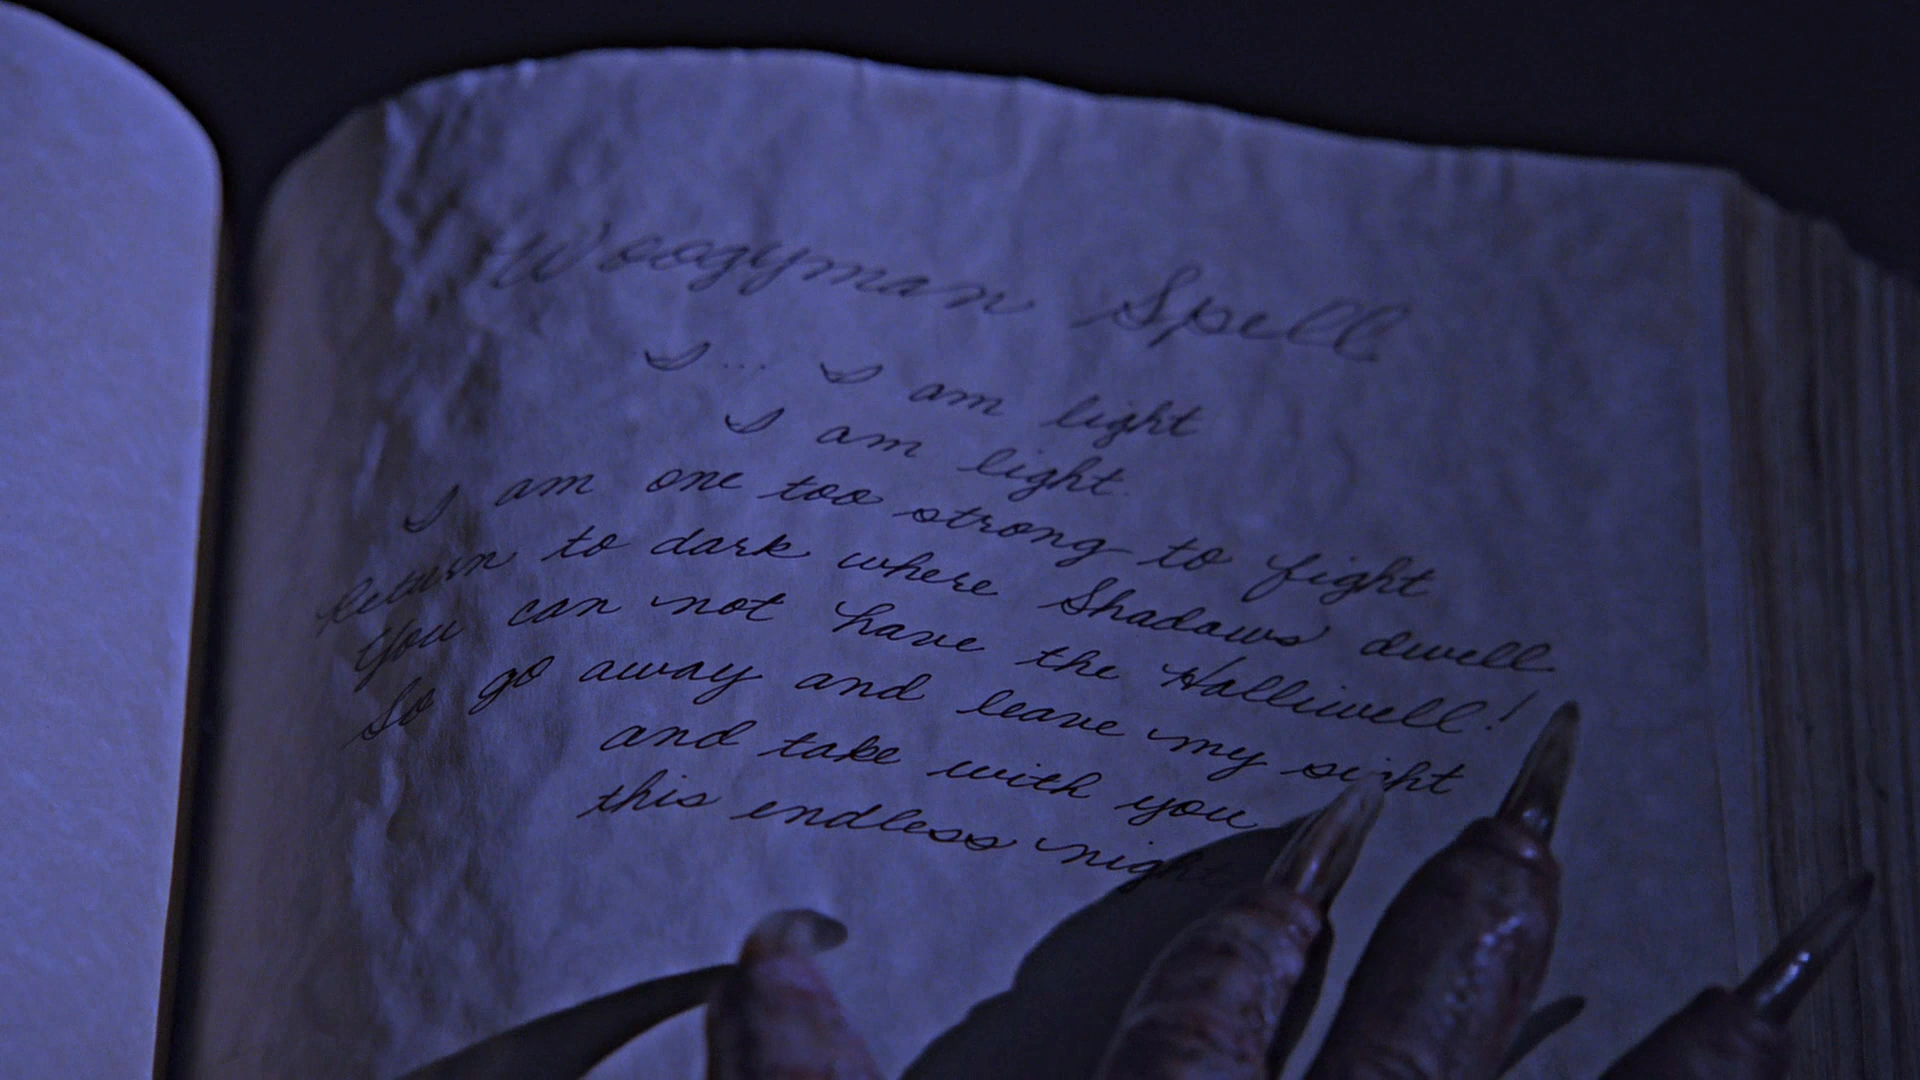 Woogyman Spell
I... I am light
I am light.
I am one too strong to fight
Return to dark where Shadows dwell
You can not have the Halliwell!
So go away and leave my sight
and take with you
this endless night